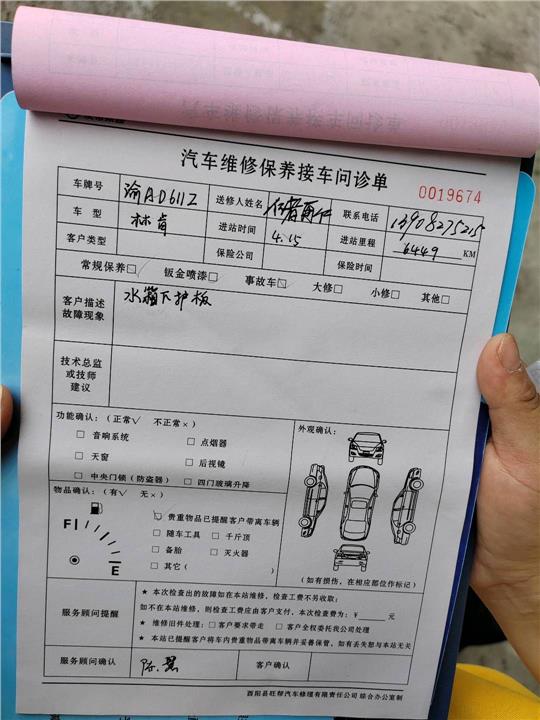 汽车维修保养接车问诊单
0019674
车牌号 渝AD611Z 送修人姓名 联系电话 13908275215
车 型 林肯 进站时间 4.15 进站里程 6449 KM
客户类型 保险公司 保险时间
常规保养□ 钣金喷漆□ 事故车□ 大修□ 小修□ 其他□
客户描述故障现象 水箱下护板
技术总监或技师建议
功能确认：（正常√ 不正常×） 外观确认：
□ 音响系统 □ 点烟器
□ 天窗 □ 后视镜
□ 中央门锁（防盗器） □ 四门玻璃升降
物品确认：（有√ 无×）
□ 贵重物品已提醒客户带离车辆
□ 随车工具 □ 千斤顶
□ 备胎 □ 灭火器
□ 其它（ ）
F E
（如有损伤，在相应部位作标记）
服务顾问提醒
★ 本次检查出的故障如在本站维修，检查工费不另收取；
如不在本站维修，则检查工费应由客户支付，本次检查费为：¥ 元
★ 维修旧件处理：□ 客户要求带走 □ 客户全权委托我公司处理
★ 本站已提醒客户将车内贵重物品带离车辆并妥善保管，如有丢失恕与本站无关
服务顾问确认 客户确认
酉阳县旺帮汽车修理有限责任公司 综合办公室制